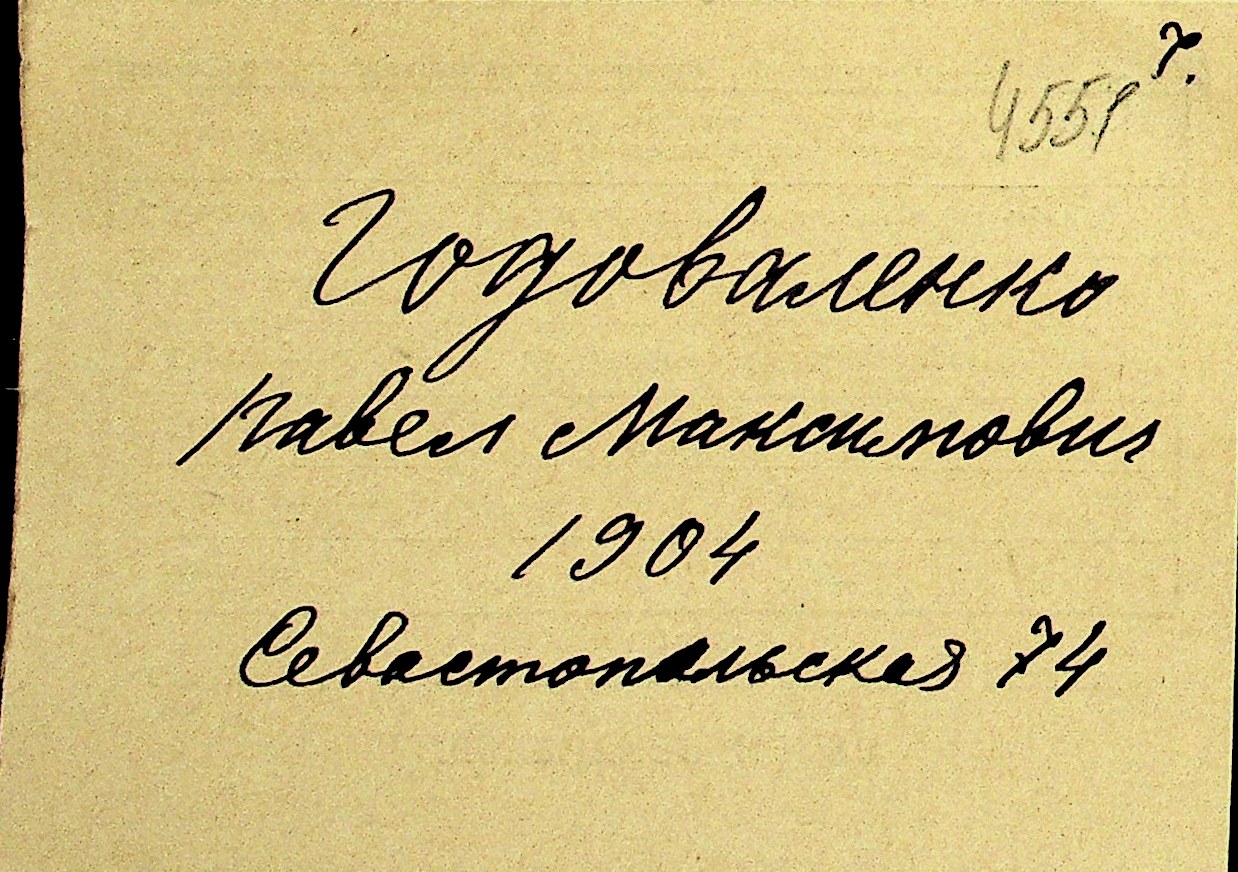 7.
4551
Годоваленко
Павел Максимович
1904
Севастопольская 74